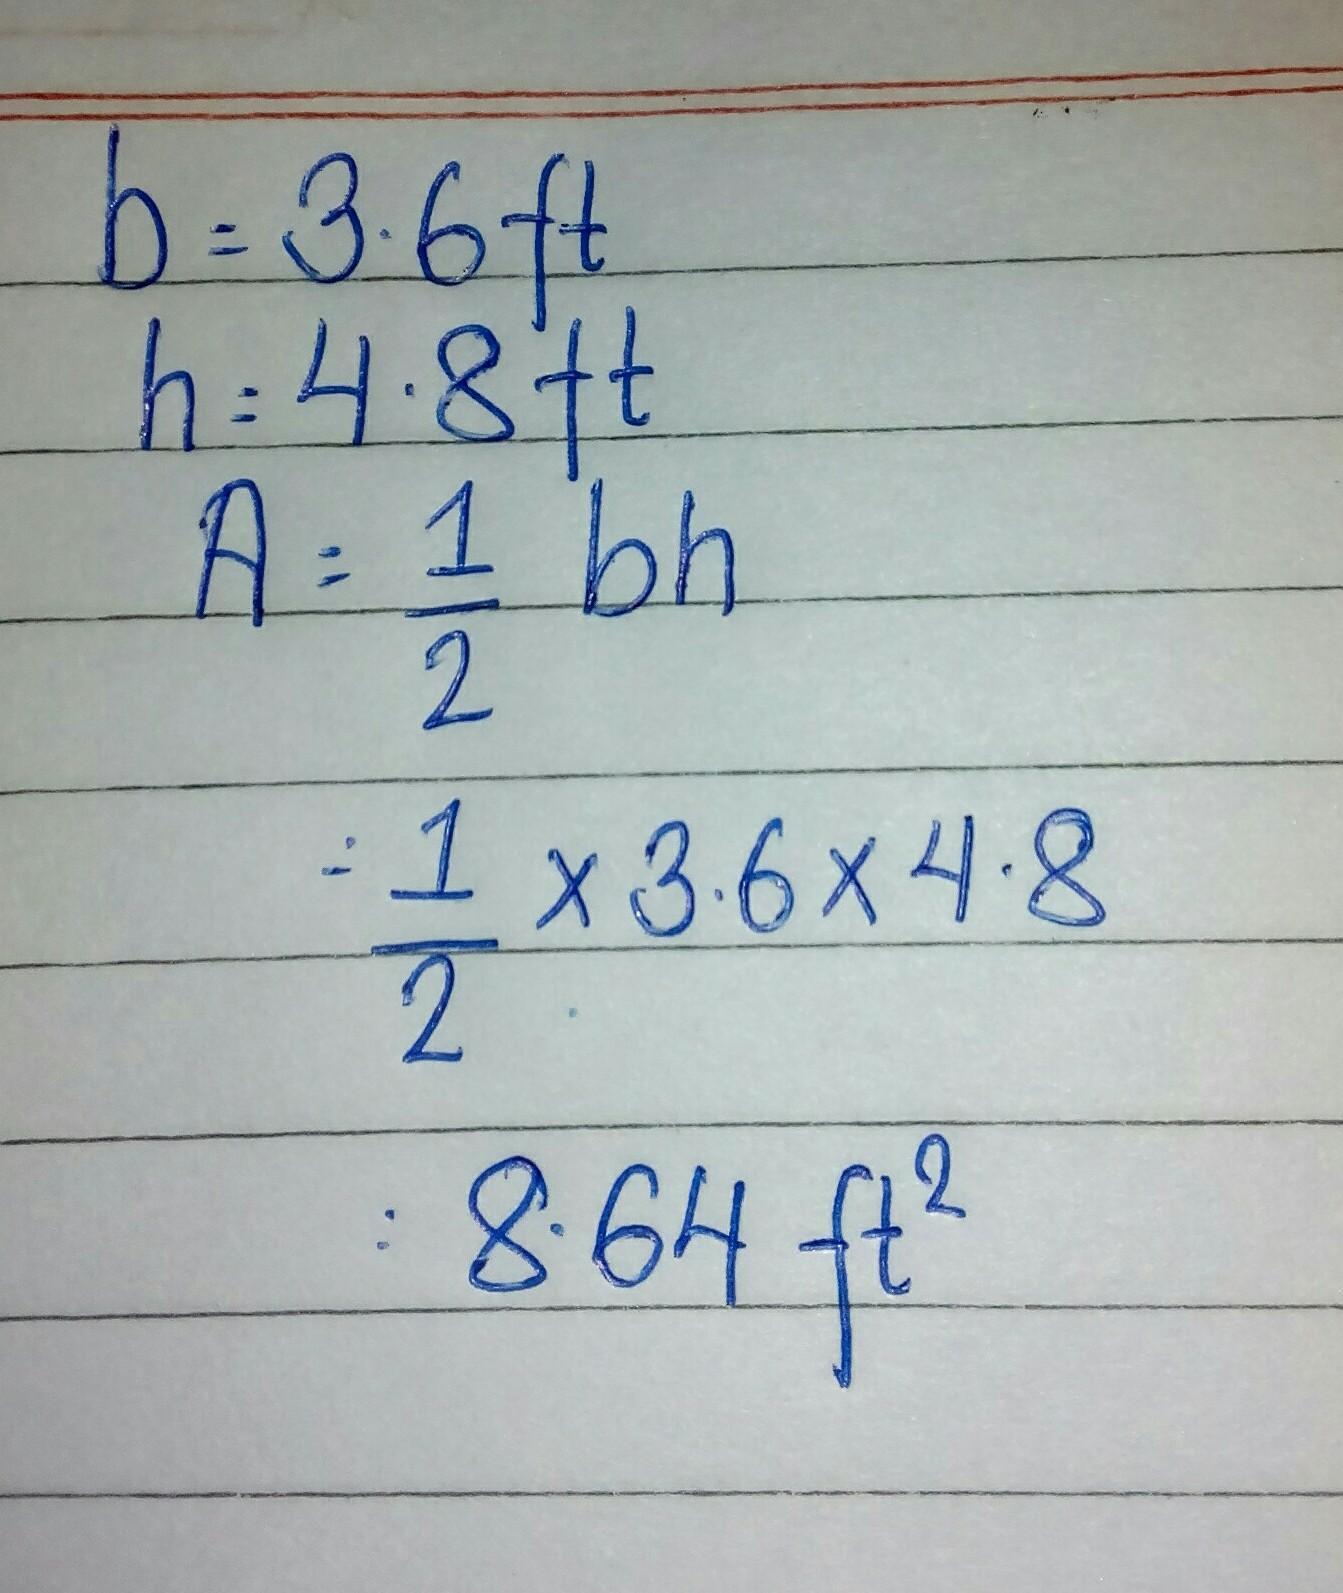 b = 3.6 ft
h = 4.8 ft
A = 1/2 bh
= 1/2 x 3.6 x 4.8
= 8.64 ft²